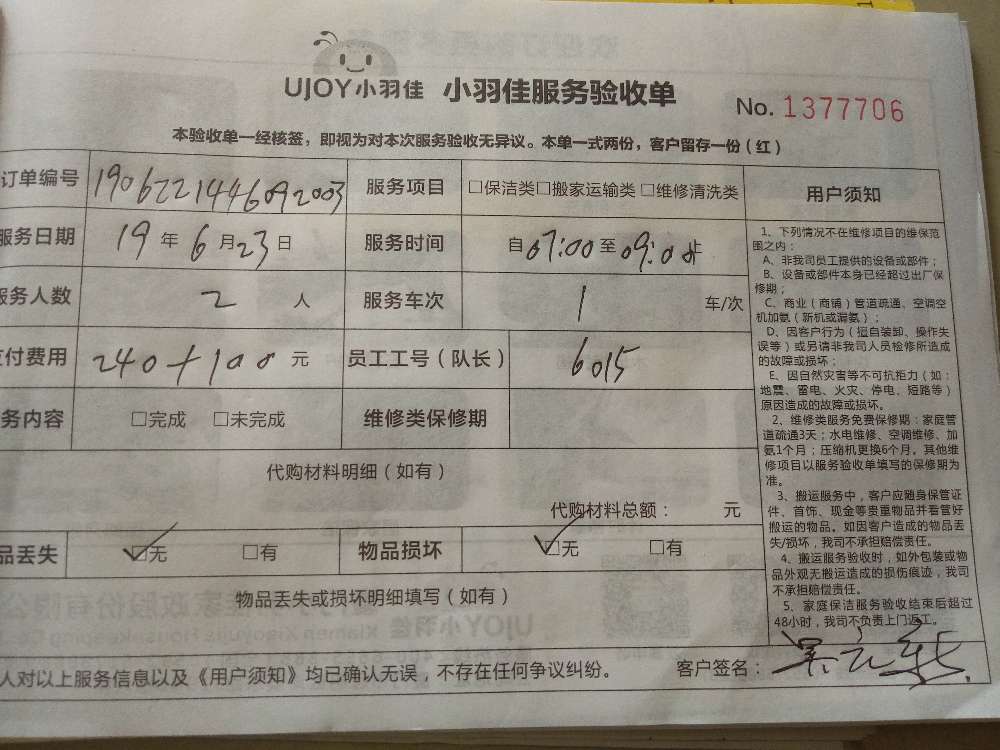 UJOY小羽佳 小羽佳服务验收单
No. 1377706
本验收单一经核签，即视为对本次服务验收无异议。本单一式两份，客户留存一份（红）
订单编号 1906221446092003 服务项目 □保洁类□搬家运输类□维修清洗类
服务日期 19年6月23日 服务时间 自07:00至09:00止
服务人数 2 人 服务车次 1 车/次
付费用 240+100元 员工工号（队长） 6015
务内容 □完成 □未完成 维修类保修期
代购材料明细（如有）
代购材料总额： 元
品丢失 ☑无 □有 物品损坏 ☑无 □有
物品丢失或损坏明细填写（如有）
人对以上服务信息以及《用户须知》均已确认无误，不存在任何争议纠纷。
客户签名：
用户须知
1、下列情况不在维修项目的维保范
围之内：
A、非我司员工提供的设备或部件；
B、设备或部件本身已经超过出厂保
修期；
C、商业（商铺）管道疏通、空调空
机加氨（新机或漏氨）；
D、因客户行为（擅自装卸、操作失
误等）或另请非我司人员检修所造成
的故障或损坏；
E、因自然灾害等不可抗拒力（如：
地震、雷电、火灾、停电、短路等）
原因造成的故障或损坏。
2、维修类服务免费保修期：家庭管
道疏通3天；水电维修、空调维修、加
氨1个月；压缩机更换6个月。其他维
修项目以服务验收单填写的保修期为
准。
3、搬运服务中，客户应随身保管证
件、首饰、现金等贵重物品并看管好
搬运的物品。如因客户造成的物品丢
失/损坏，我司不承担赔偿责任。
4、搬运服务验收时，如外包装或物
品外观无搬运造成的损伤痕迹，我司
不承担赔偿责任。
5、家庭保洁服务验收结束后超过
48小时，我司不负责上门返工。